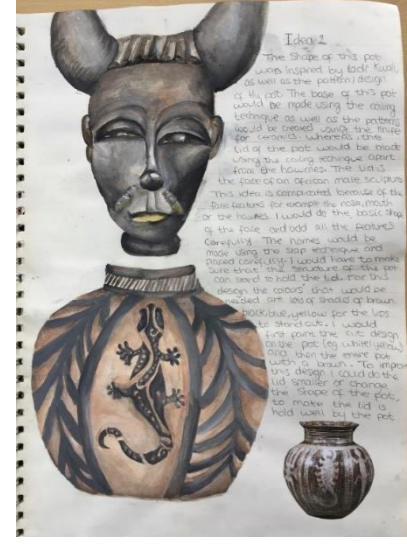 Idea 2
The Shape of this pot
was inspired by ladi Kwali,
as well as the pattern/design
of the pot. The base of this pot
would be made using the coiling
technique as well as the patterns
would be created using the knife
for ceramics. Whereas the
lid of the pot would be made
using the coiling technique apart
from the hawrnes. The lid is
the face of an african male sculpture
This idea is complicated because of the
face features for example the nose, mouth
or the hawrnes. I would do the basic shape
of the face and add all the features
carefully. The hornes would be
made using the slap technique and
placed carefully. I would have to make
sure that the structure of the pot
can stand to hold the lid. For this
design the colours that would be
needed are lots of shades of brown,
black, blue, yellow for the lips
to stand out. I would
first paint the cut design
on the pot (eg white/yellow)
and then the entire pot
with a brown. To improve
this design I could do the
lid smaller or change
the shape of the pot,
to make the lid is
hold well by the pot